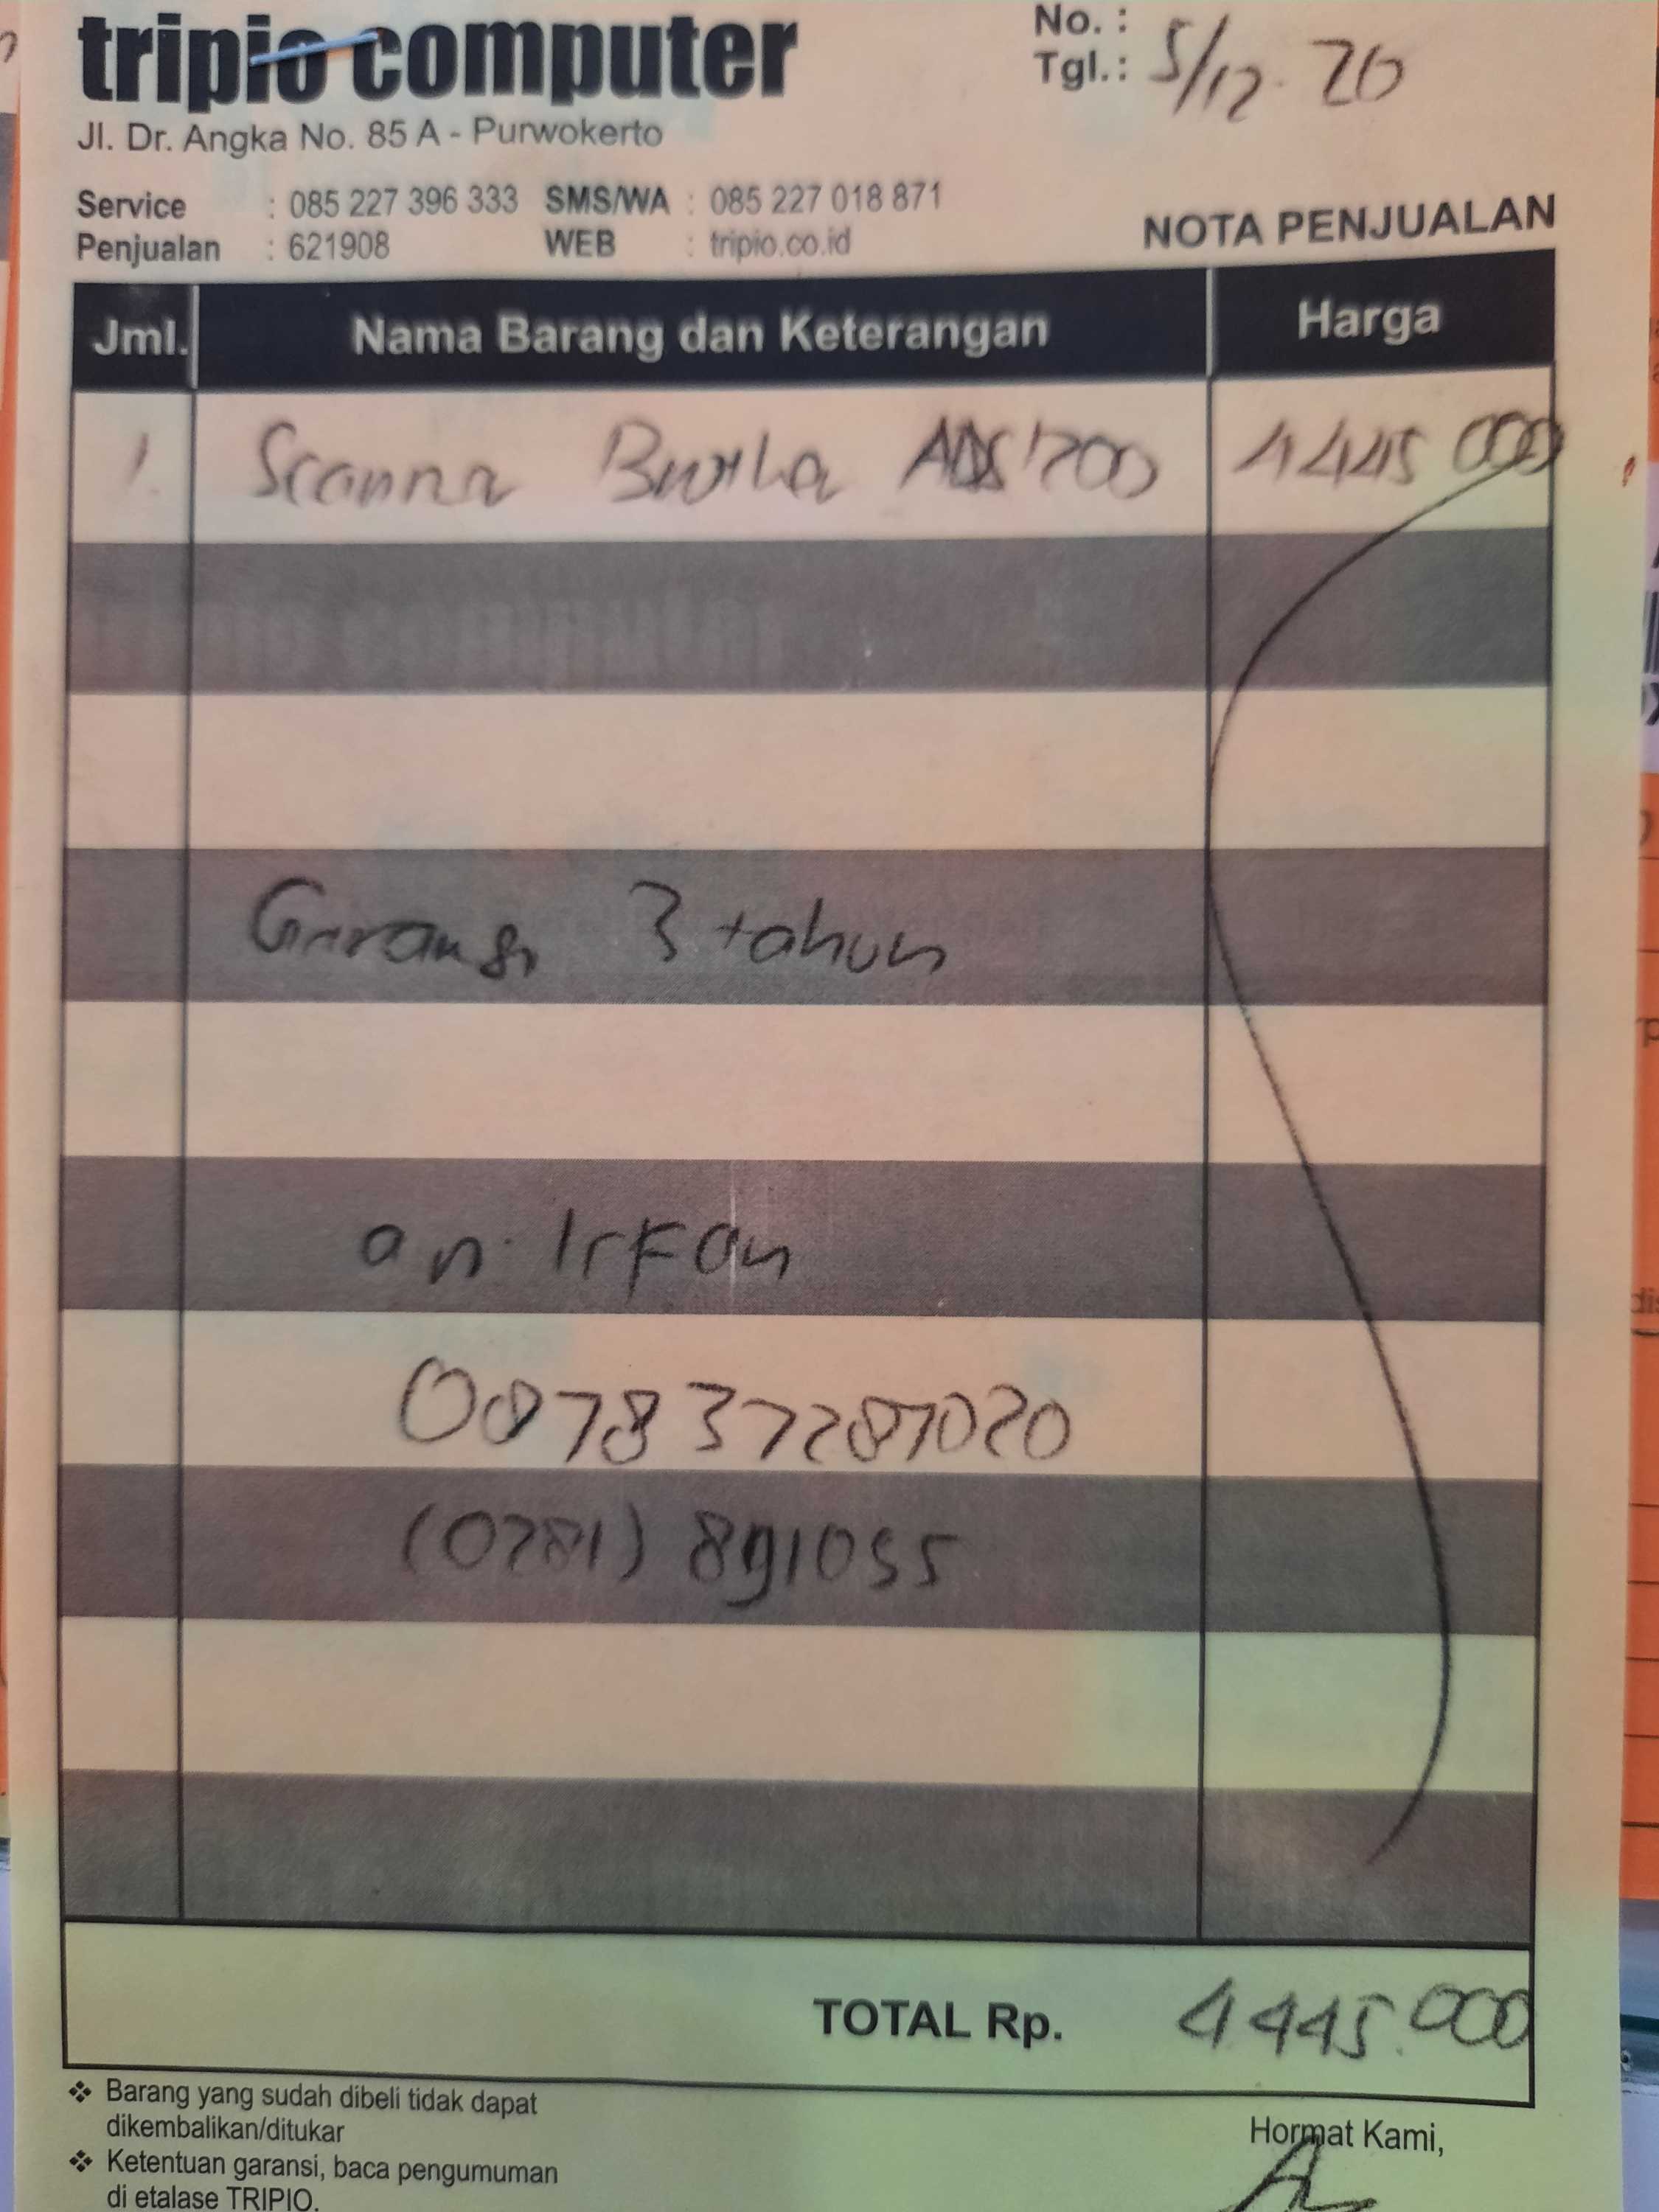 tripio computer
Jl. Dr. Angka No. 85 A - Purwokerto
No. :
Tgl. : 5/12 . 20
Service : 085 227 396 333 SMS/WA : 085 227 018 871
Penjualan : 621908 WEB : tripio.co.id
NOTA PENJUALAN
Jml. Nama Barang dan Keterangan Harga
1. Scanner Brother ADS 1700 4445 000
Garansi 3 tahun
an. Irfan
087837287020
(0281) 891055
TOTAL Rp. 4.445.000
❖ Barang yang sudah dibeli tidak dapat
dikembalikan/ditukar
❖ Ketentuan garansi, baca pengumuman
di etalase TRIPIO.
Hormat Kami,